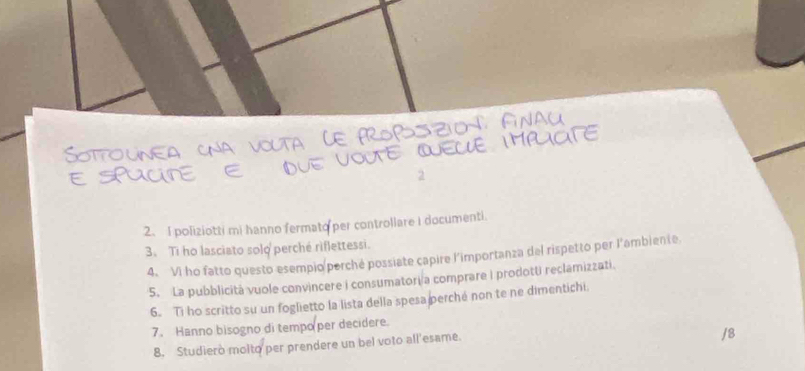 SOTTOLINEA UNA VOLTA LE PROPOSIZIONI FINALI
ESPLICITE E DUE VOLTE QUELLE IMPLICITE
2
2. I poliziotti mi hanno fermato/per controllare i documenti.
3. Ti ho lasciato solo/perché riflettessi.
4. Vi ho fatto questo esempio/perché possiate capire l'importanza del rispetto per l'ambiente.
5. La pubblicità vuole convincere i consumatori/a comprare i prodotti reclamizzati.
6. Ti ho scritto su un foglietto la lista della spesa/perché non te ne dimentichi.
7. Hanno bisogno di tempo/per decidere.
8. Studierò molto/per prendere un bel voto all'esame.
/8